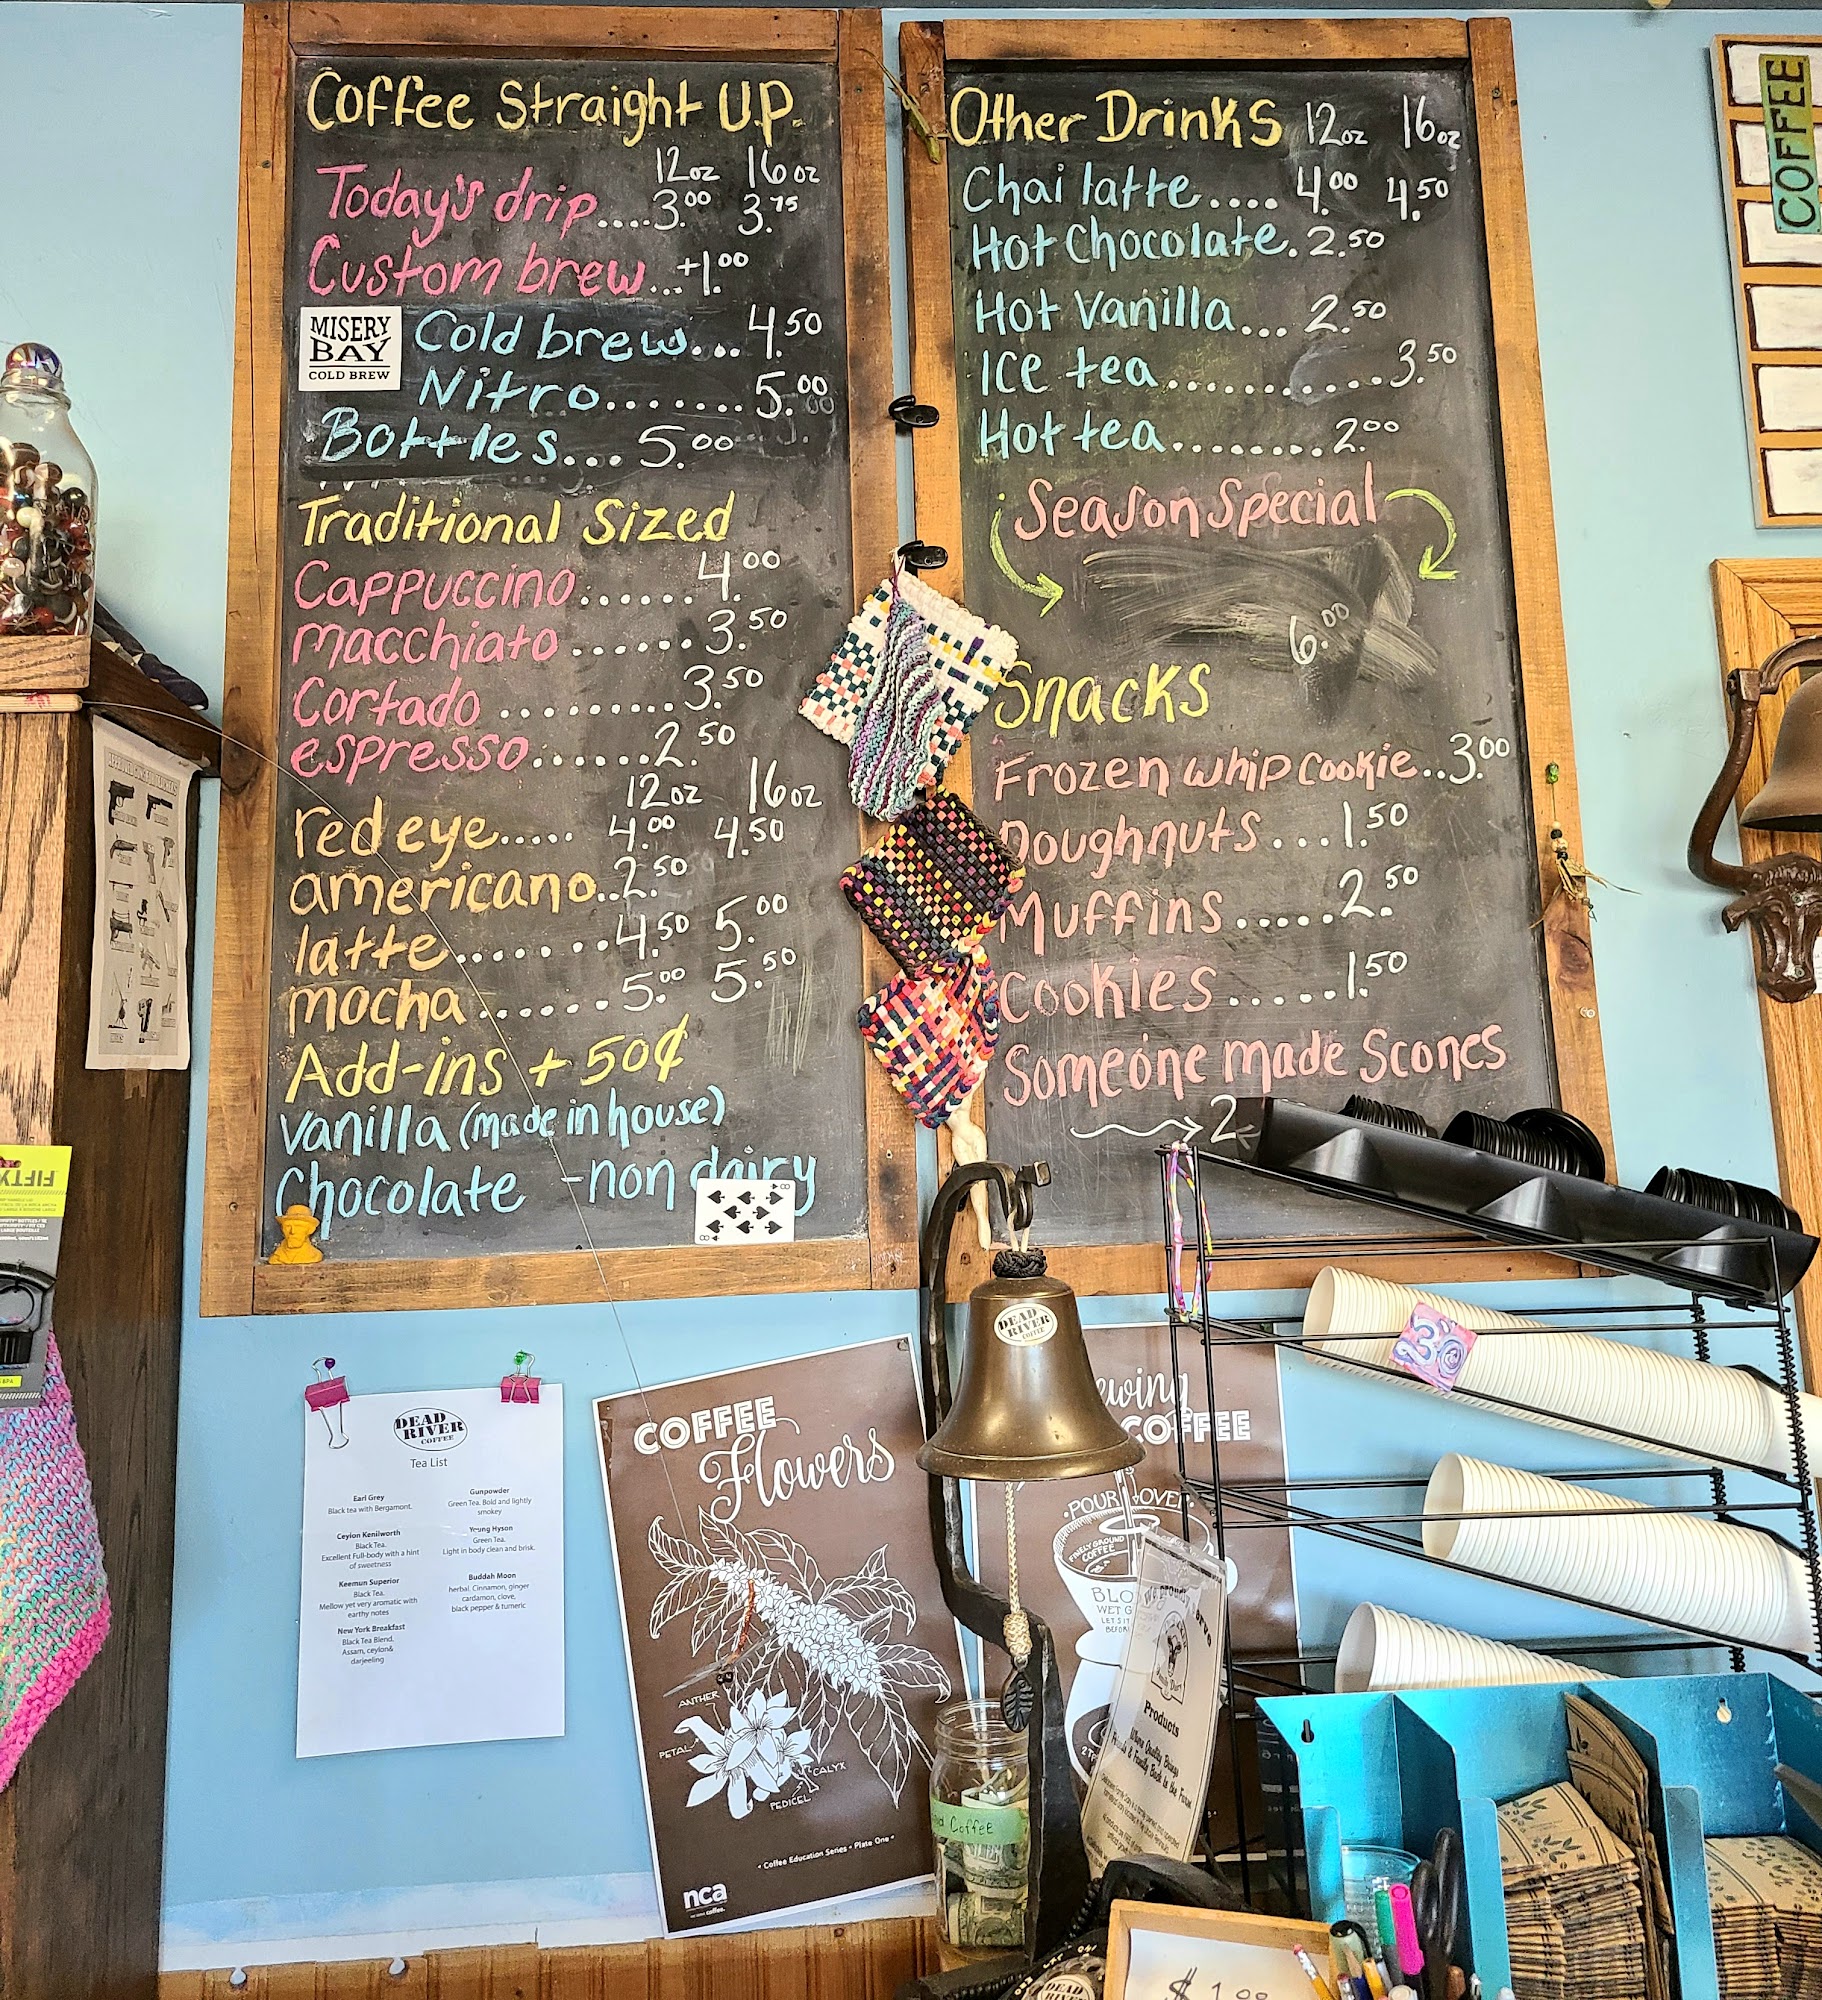 Coffee Straight U.P.
12oz 16oz
Today's drip....3.00 3.75
Custom brew...+1.00
MISERY
BAY
COLD BREW
Cold brew....4.50
Nitro.......5.00
Bottles...5.00
Traditional Sized
Cappuccino......4.00
macchiato......3.50
Cortado.........3.50
espresso......2.50
12oz 16oz
red eye..... 4.00 4.50
americano..2.50
latte.......4.50 5.00
mocha......5.00 5.50
Add-ins + 50¢
Vanilla (made in house)
Chocolate -non dairy
8
8
Other Drinks 12oz 16oz
Chai latte.... 4.00 4.50
Hot Chocolate.2.50
Hot Vanilla... 2.50
Ice tea............3.50
Hot tea........2.00
Season Special
6.00
Snacks
Frozen whip cookie..3.00
Doughnuts...1.50
Muffins.....2.50
Cookies.....1.50
Someone made Scones
2
COFFEE
FIFTY
DEAD
RIVER
COFFEE
Tea List
Earl Grey
Black tea with Bergamont.
Ceylon Kenilworth
Black Tea.
Excellent Full-body with a hint
of sweetness
Keemun Superior
Black Tea.
Mellow yet very aromatic with
earthy notes
New York Breakfast
Black Tea Blend.
Assam, ceylon&
darjeeling
Gunpowder
Green Tea. Bold and lightly
smokey
Yeung Hyson
Green Tea.
Light in body clean and brisk.
Buddah Moon
herbal. Cinnamon, ginger
cardamon, clove,
black pepper & turmeric
COFFEE
Flowers
ANTHER
PETAL
CALYX
PEDICEL
Coffee Education Series • Plate One
nca
DEAD
RIVER
COFFEE
COFFEE
POUR OVER
FINELY GROUND
COFFEE
Products
Coffee
DEAD
RIVER
$1.00